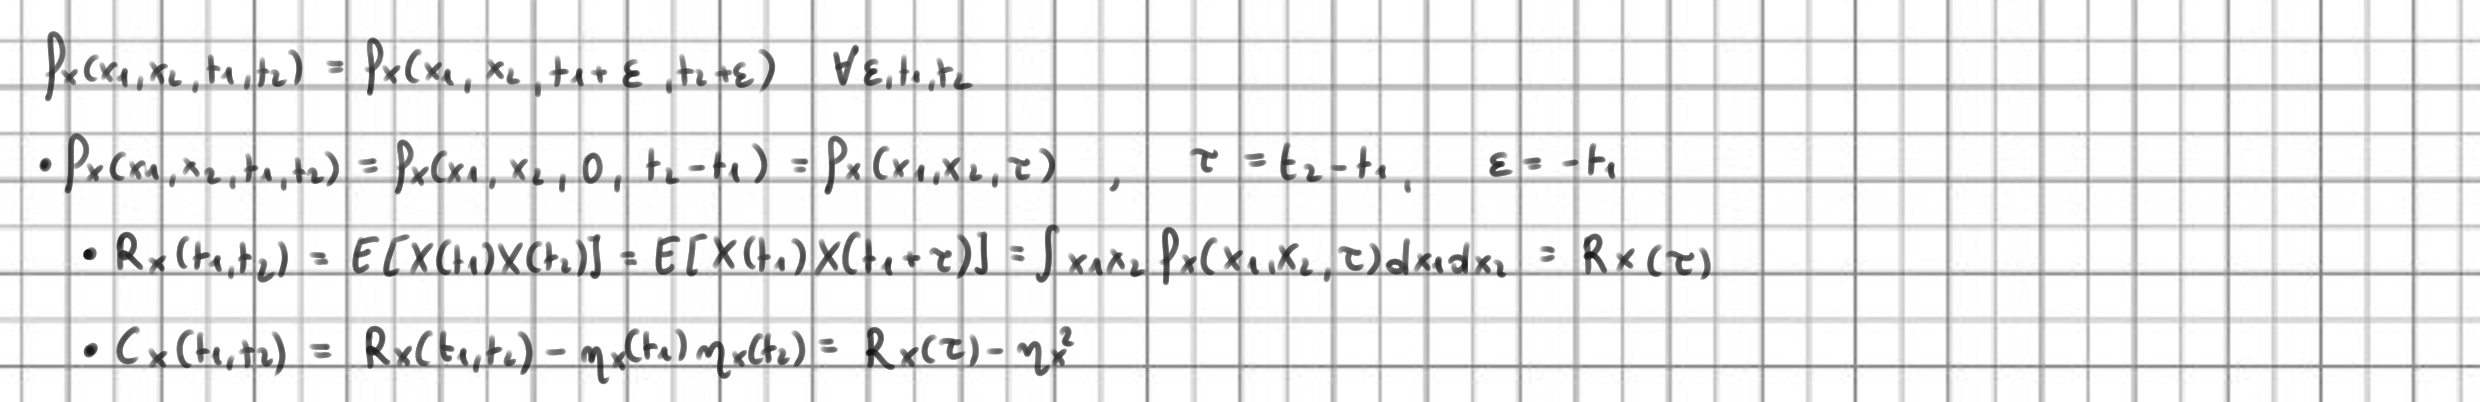 fx(x1,x2,t1,t2) = fx(x1,x2,t1+ε,t2+ε) ∀ε,t1,t2
• fx(x1,x2,t1,t2) = fx(x1,x2,0,t2-t1) = fx(x1,x2,τ) , τ = t2-t1, ε = -t1
• Rx(t1,t2) = E[X(t1)X(t2)] = E[X(t1)X(t1+τ)] = ∫x1x2 fx(x1,x2,τ)dx1dx2 = Rx(τ)
• Cx(t1,t2) = Rx(t1,t2) - ηx(t1)ηx(t2) = Rx(τ) - ηx²